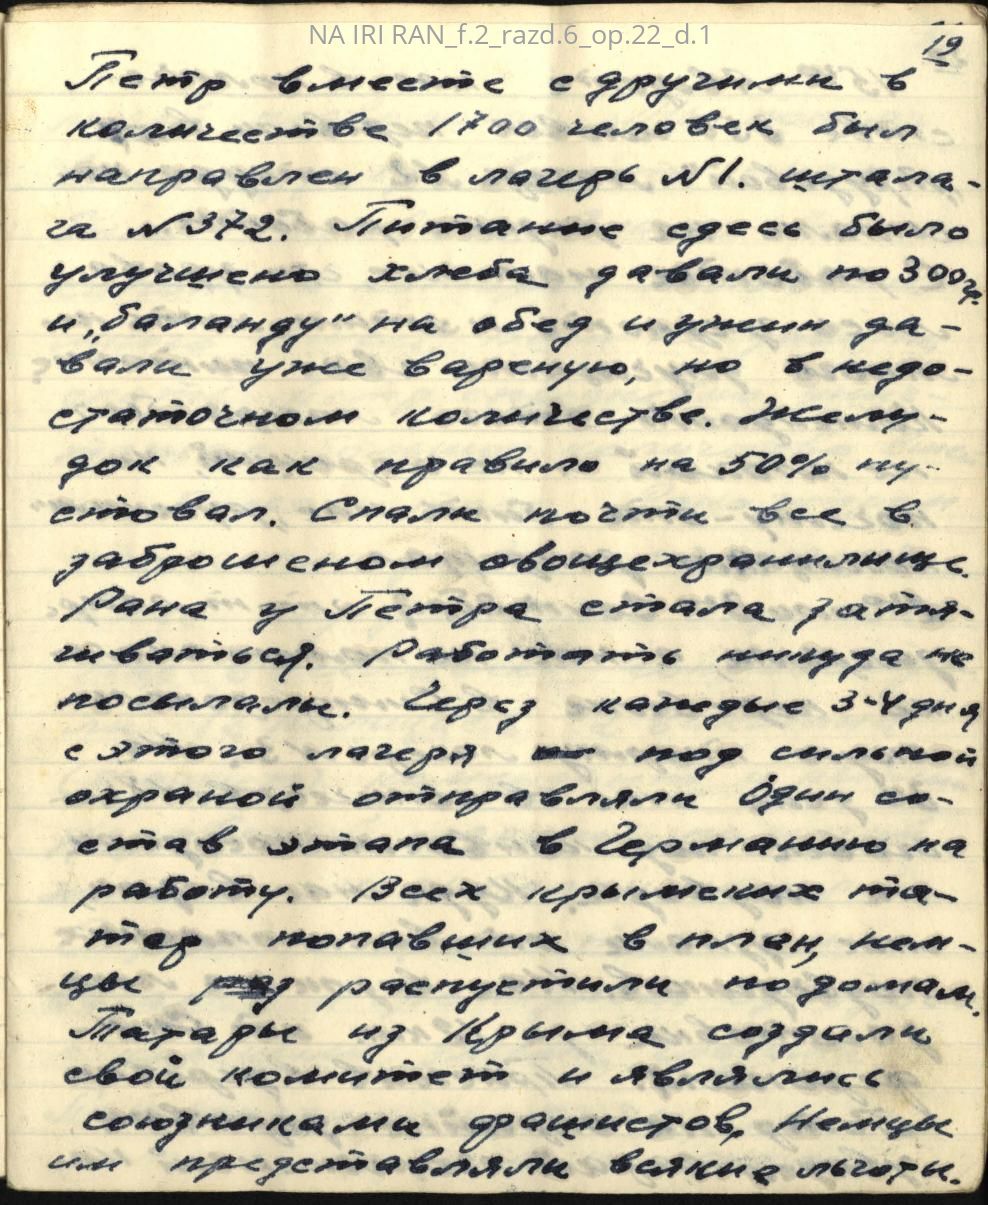 NA IRI RAN_f.2_razd.6_op.22_d.1
19
Петр вместе с другими в
количестве 1700 человек был
направлен в лагерь №1. штала-
га №372. Питание сдесь было
улучшено хлеба давали по 300гр.
и „баланду" на обед и ужин да-
вали уже вареную, но в недо-
статочном количестве. Желу-
док как правило на 50% пу-
стовал. Спали почти все в
заброшеном овощехранилище.
Рана у Петра стала затя-
гиваться. Работать никуда не
посылали. Через каждые 3-4 дня
с этого лагеря под сильной
охраной отправляли Один со-
став этапа в Германию на
работу. Всех крымских та-
тар попавших в плен, нем-
цы распустили по домам.
Татары из Крыма создали
свой комитет и являлись
союзниками фашистов, Немцы
им представляли всякие льготы.